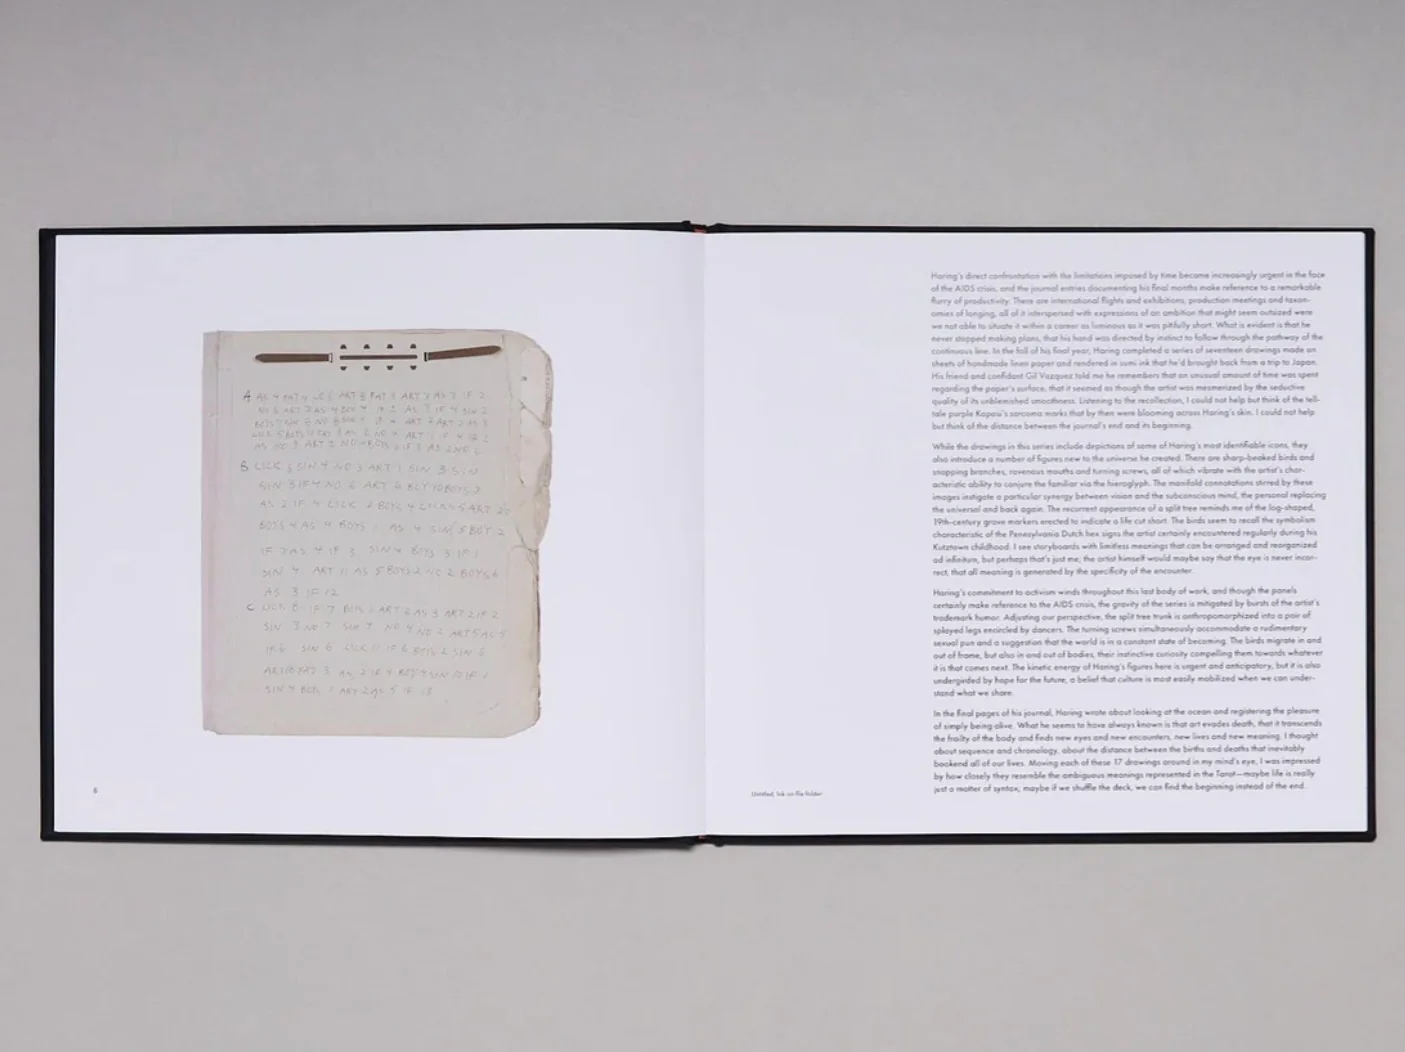 A AS 4 FAT 4 LICK 6 ART 2 FAT 3 ART 7 AS 3 IF 2
BOYS 4 AS 4 BOYS 1 AS 4 SIN 5 BOY 2
IF 7 AS 4 IF 3 SIN 4 BOYS 3 IF 1
SIN 4 ART 11 AS 5 BOYS 2 NO 2 BOYS 6
AS 3 IF 12
6
Untitled, Ink on file folder
Haring's direct confrontation with the limitations imposed by time became increasingly urgent in the face
of the AIDS crisis, and the journal entries documenting his final months make reference to a remarkable
flurry of productivity. There are international flights and exhibitions, production meetings and taxon-
omies of longing, all of it interspersed with expressions of an ambition that might seem outsized were
we not able to situate it within a career as luminous as it was pitifully short. What is evident is that he
never stopped making plans, that his hand was directed by instinct to follow through the pathway of the
continuous line. In the fall of his final year, Haring completed a series of seventeen drawings made on
sheets of handmade linen paper and rendered in sumi ink that he'd brought back from a trip to Japan.
His friend and confidant Gil Vazquez told me he remembers that an unusual amount of time was spent
regarding the paper's surface, that it seemed as though the artist was mesmerized by the seductive
quality of its unblemished smoothness. Listening to the recollection, I could not help but think of the tell-
tale purple Kaposi's sarcoma marks that by then were blooming across Haring's skin. I could not help
but think of the distance between the journal's end and its beginning.
While the drawings in this series include depictions of some of Haring's most identifiable icons, they
also introduce a number of figures new to the universe he created. There are sharp-beaked birds and
snapping branches, ravenous mouths and turning screws, all of which vibrate with the artist's char-
acteristic ability to conjure the familiar via the hieroglyph. The manifold connotations stirred by these
images instigate a particular synergy between vision and the subconscious mind, the personal replacing
the universal and back again. The recurrent appearance of a split tree reminds me of the log-shaped,
19th-century grave markers erected to indicate a life cut short. The birds seem to recall the symbolism
characteristic of the Pennsylvania Dutch hex signs the artist certainly encountered regularly during his
Kutztown childhood. I see storyboards with limitless meanings that can be arranged and reorganized
ad infinitum, but perhaps that's just me; the artist himself would maybe say that the eye is never incor-
rect, that all meaning is generated by the specificity of the encounter.
Haring's commitment to activism winds throughout this last body of work, and though the panels
certainly make reference to the AIDS crisis, the gravity of the series is mitigated by bursts of the artist's
trademark humor. Adjusting our perspective, the split tree trunk is anthropomorphized into a pair of
splayed legs encircled by dancers. The turning screws simultaneously accommodate a rudimentary
sexual pun and a suggestion that the world is in a constant state of becoming. The birds migrate in and
out of frame, but also in and out of bodies, their instinctive curiosity compelling them towards whatever
it is that comes next. The kinetic energy of Haring's figures here is urgent and anticipatory, but it is also
undergirded by hope for the future, a belief that culture is most easily mobilized when we can under-
stand what we share.
In the final pages of his journal, Haring wrote about looking at the ocean and registering the pleasure
of simply being alive. What he seems to have always known is that art evades death, that it transcends
the frailty of the body and finds new eyes and new encounters, new lives and new meaning. I thought
about sequence and chronology, about the distance between the births and deaths that inevitably
bookend all of our lives. Moving each of these 17 drawings around in my mind's eye, I was impressed
by how closely they resemble the ambiguous meanings represented in the Tarot—maybe life is really
just a matter of syntax; maybe if we shuffle the deck, we can find the beginning instead of the end.